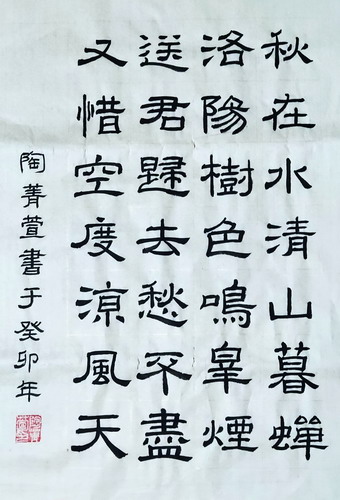 秋在水清山暮蟬
洛陽樹色鳴皐煙
送君歸去愁不盡
又惜空度涼風天
陶菁萱書于癸卯年